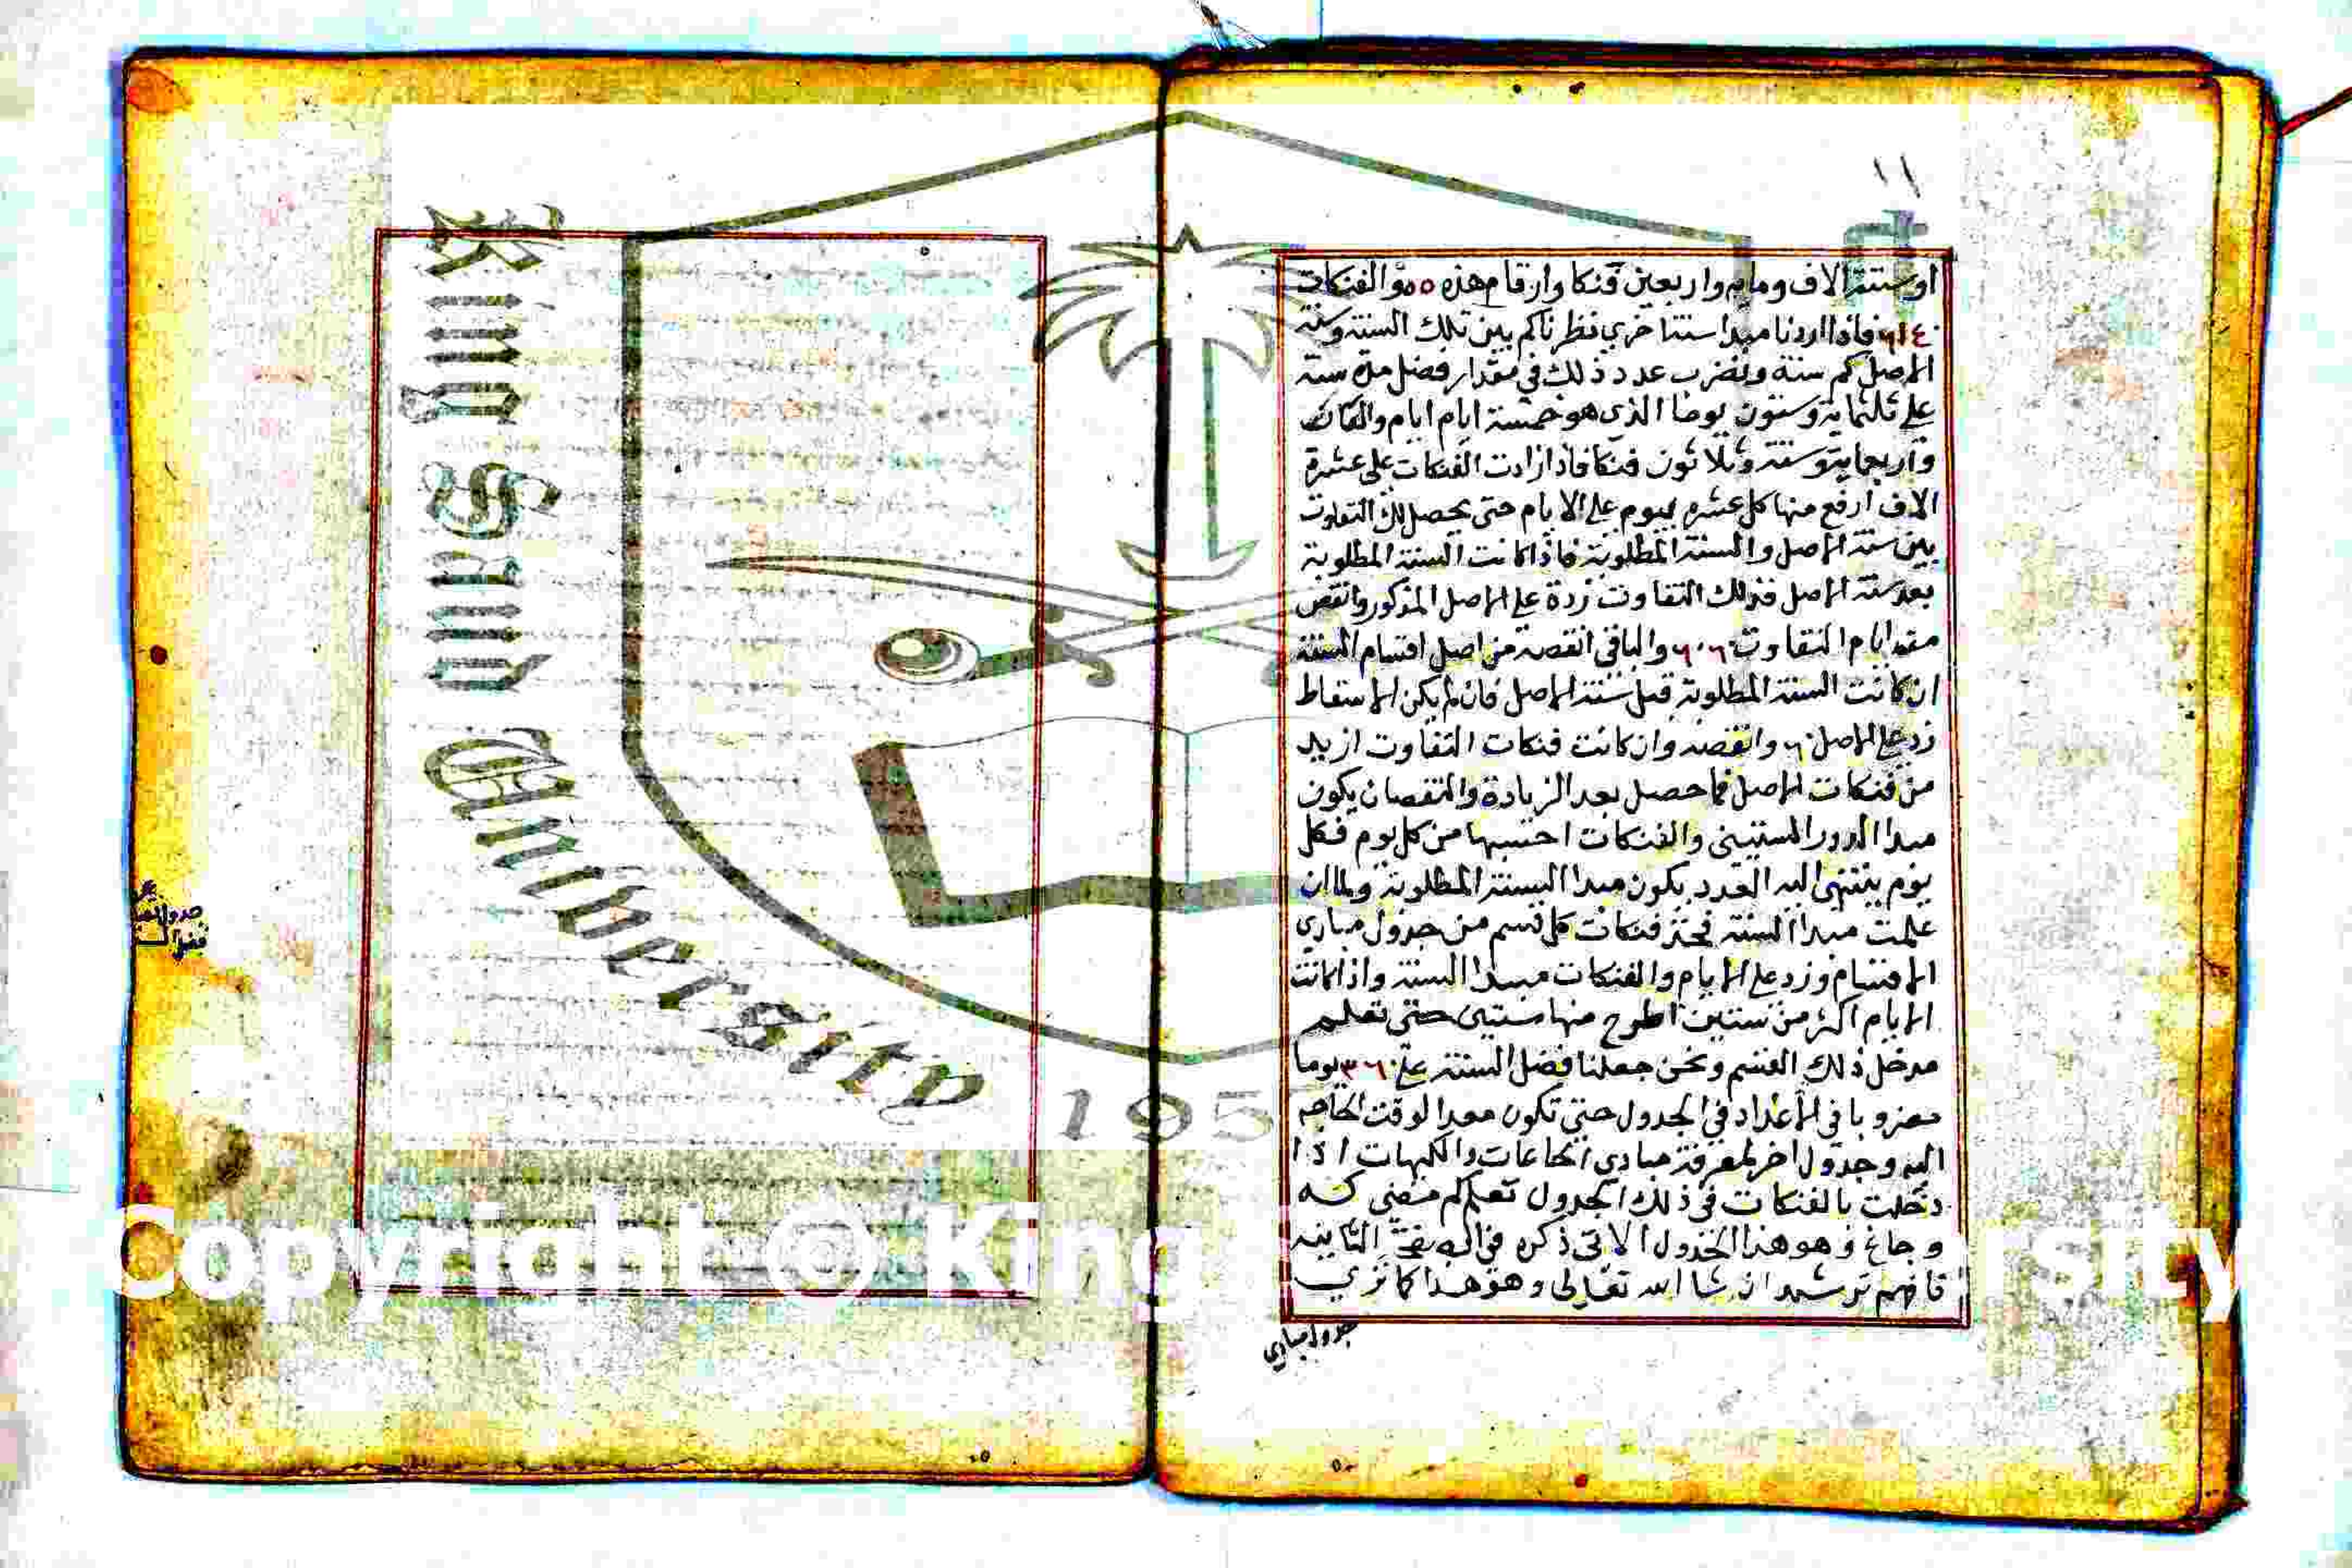 ١١
او ستة الاف ومايه واربعين فنكا وارقام هذه ٥٥ و الفنكات
٦١٤٠ فاذا اردنا مبدا سنة اخري نظرنا كم بين تلك السنة وسنة
الاصل كم سنة ونضرب عدد ذلك في مقدار فضل مدة سنة
علي ثلثماية وستون يوما الذي هو خمسة ايام ايام والفان
واربعماية وستة وثلاثون فنكا فاذا زادت الفنكات على عشرة
الاف ارفع منها كل عشره بيوم علي الايام حتى يحصل لك التفاوت
بين سنة الاصل والسنة المطلوبة فاذا كانت السنة المطلوبة
بعد سنة الاصل فذلك التفاوت زدة علي الاصل المذكور وانقص
ايام التفاوت والباقي انقصه من اصل اقسام السنة
ان كانت السنة المطلوبة قبل سنة الاصل فان لم يكن الاسقاط
زد علي الاصل ٦٠ وانقصه وان كانت فنكات التفاوت ازيد
من فنكات الاصل فما حصل بعد الزيادة والنقصان يكون
مبدا الدور الستيني والفنكات احتسبها من كل يوم فكل
يوم ينتهي اليه العدد يكون مبدا السنة المطلوبة ولما ان
علمت مبدا السنة فخذ فنكات كل قسم من جدول مبادي
الاقسام وزد علي الايام والفنكات مبدا السنة واذا كانت
الايام اكثر من ستين اطرح منها ستين حتى تعلم
مدخل ذلك القسم ونحن جعلنا فضل السنة علي ٣٦٠ يوما
باقي الاعداد في الجدول حتى تكون معدا لوقت الحاجه
اليه وجدول اخر لمعرفة مبادي الجاغات والكيهات اذا
دخلت بالفنكات في ذلك الجدول تعلم كم مضي كه
و جاغ و هو هذا الجدول الاتي ذكره في التانيه
فافهم ترشد ان شا الله تعالى وهو هذا كما تري
جدول مبادي
جدول
King Saud University
195
Copyright © King
rsity